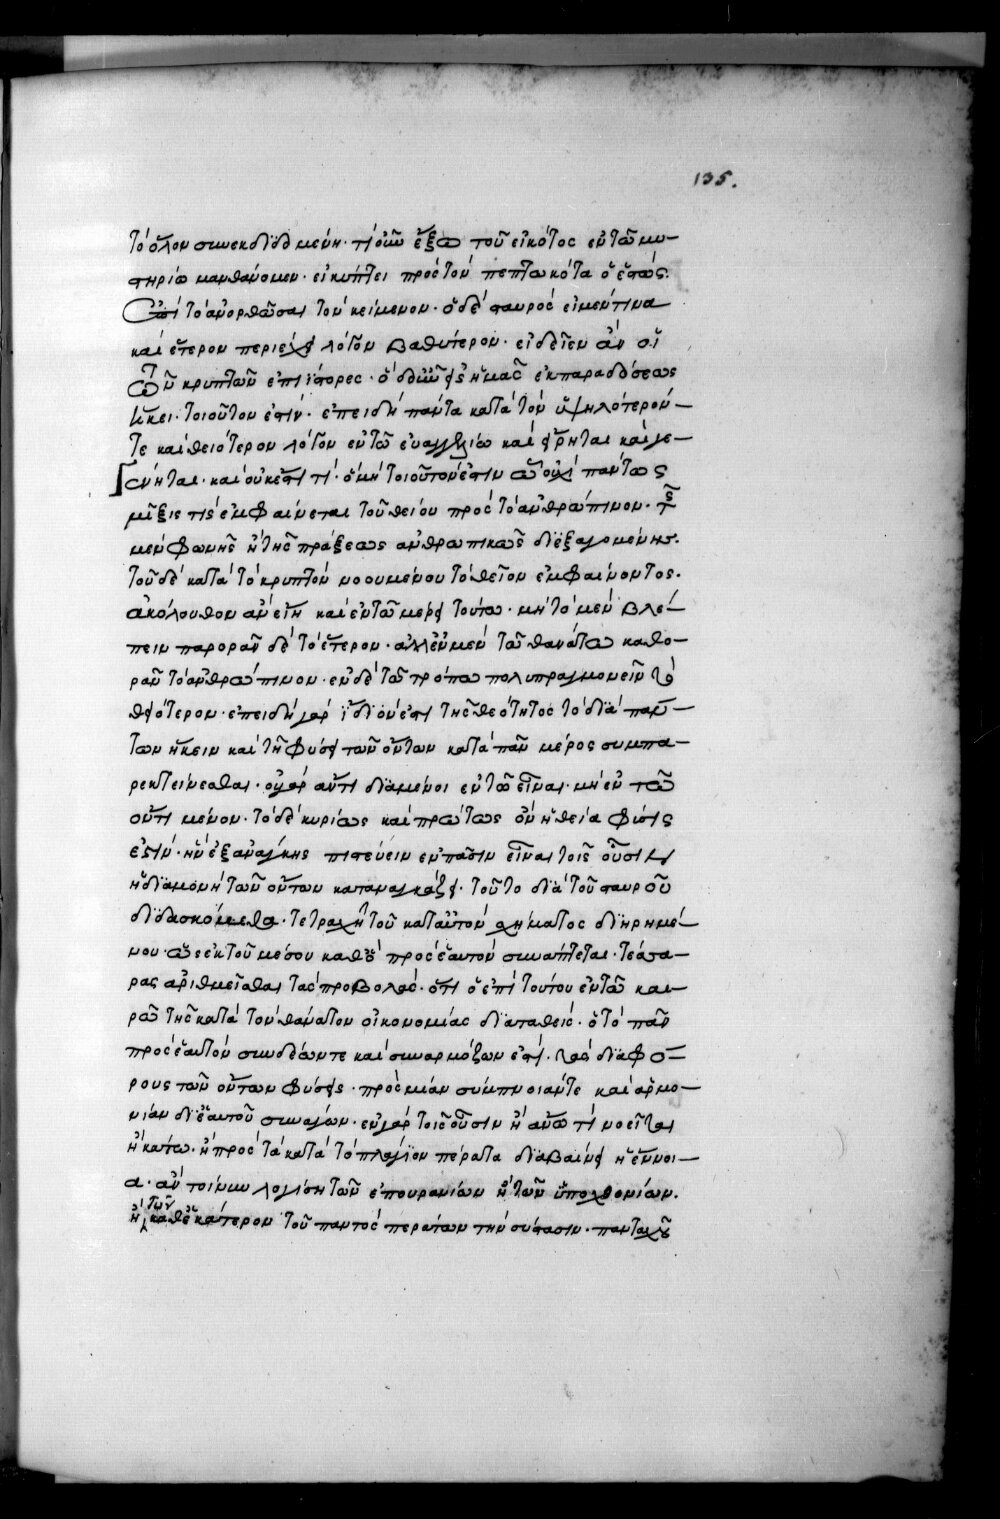 135.
τὸ ὅλον συνεκδιδομένη· τί οὖν ἔξω τοῦ εἰκότος ἐν τῶ μυ-
στηρίω μανθάνομεν· εἰ κύπτει πρὸς τὸν πεπτωκότα ὁ ἑστώς.
ἐπὶ τὸ ἀνορθῶσαι τὸν κείμενον· ὁ δὲ σταυρὸς εἰ μέν τινα
καὶ ἕτερον περιέχει λόγον βαθύτερον· εἰδεῖεν ἂν οἱ
τῶν κρυπτῶν ἐπιΐστορες· ὃ δ᾽ οὖν εἰς ἡμᾶς ἐκ παραδόσεως
ἥκει· τοιοῦτον ἐστίν· ἐπειδὴ πάντα κατὰ τὸν ὑψηλότερόν-
τε καὶ θειότερον λόγον ἐν τῶ εὐαγγελίω καὶ εἴρηται καὶ γε-
γένηται· καὶ οὐκ ἔστι τί· ὃ μὴ τοιοῦτον ἐστιν ὧ οὐχὶ πάντως
μῖξις τίς ἐμφαίνεται τοῦ θείου πρὸς τὸ ἀνθρώπινον· τῆς
μὲν φωνῆς ἢ τῆς πράξεως ἀνθρωπικῶς διεξαγομένης.
τοῦ δὲ κατὰ τὸ κρυπτὸν νοουμένου τὸ θεῖον ἐμφαίνοντος.
ἀκόλουθον ἂν εἴη καὶ ἐν τῶ μέρει τούτω· μὴ τὸ μὲν βλέ-
πειν παρορᾶν δὲ τὸ ἕτερον· ἀλλ᾽ ἐν μὲν τῶ θανάτω καθο-
ρᾶν τὸ ἀνθρώπινον· ἐν δὲ τῶ τρόπω πολυπραγμονεῖν τὸ
θειότερον· ἐπειδὴ γὰρ ἴδιόν ἐστι τῆς θεότητος τὸ διὰ πάν-
των ἥκειν καὶ τῆ φύσει τῶν ὄντων κατὰ πᾶν μέρος συμπα-
ρεκτείνεσθαι· οὐ γὰρ ἄν τι διαμένοι ἐν τῶ εἶναι· μὴ ἐν τῶ
ὄντι μένον· τὸ δὲ κυρίως καὶ πρώτως ὂν ἡ θεία φύσις
ἐστίν· ἣν ἐξ ἀνάγκης πιστεύειν ἐν πᾶσιν εἶναι τοῖς οὖσιν
ἡ διαμονὴ τῶν ὄντων καταναγκάζει· τοῦτο διὰ τοῦ σταυροῦ
διδασκόμεθα· τετραχῆ τοῦ κατ᾽ αὐτὸν σχήματος διηρημέ-
νου· ὡς ἐκ τοῦ μέσου καθ᾽ ὃ πρὸς ἑαυτὸν συνάπτεται· τέσσα-
ρας ἀριθμεῖσθαι τὰς προβολάς· ὅτι ὁ ἐπὶ τούτου ἐν τῶ και-
ρῶ τῆς κατὰ τὸν θάνατον οἰκονομίας διαταθείς· ὁ τὸ πᾶν
πρὸς ἑαυτὸν συνδέων τε καὶ συναρμόζων ἐστί· τὰς διαφό-
ρους τῶν ὄντων φύσεις· πρὸς μίαν σύμπνοιάν τε καὶ ἁρμο-
νίαν δι᾽ ἑαυτοῦ συνάγων· ἐν γὰρ τοῖς οὖσιν ἢ ἄνω τὶ νοεῖται
ἢ κάτω· ἢ πρὸς τὰ κατὰ τὸ πλάγιον πέρατα διαβαίνει ἡ ἔννοι-
α· ἂν τοίνυν λογίση τῶν ἐπουρανίων ἢ τῶν ὑποχθονίων.
ἢ τῶν καθ᾽ ἑκάτερον τοῦ παντὸς περάτων τὴν σύστασιν· πανταχοῦ